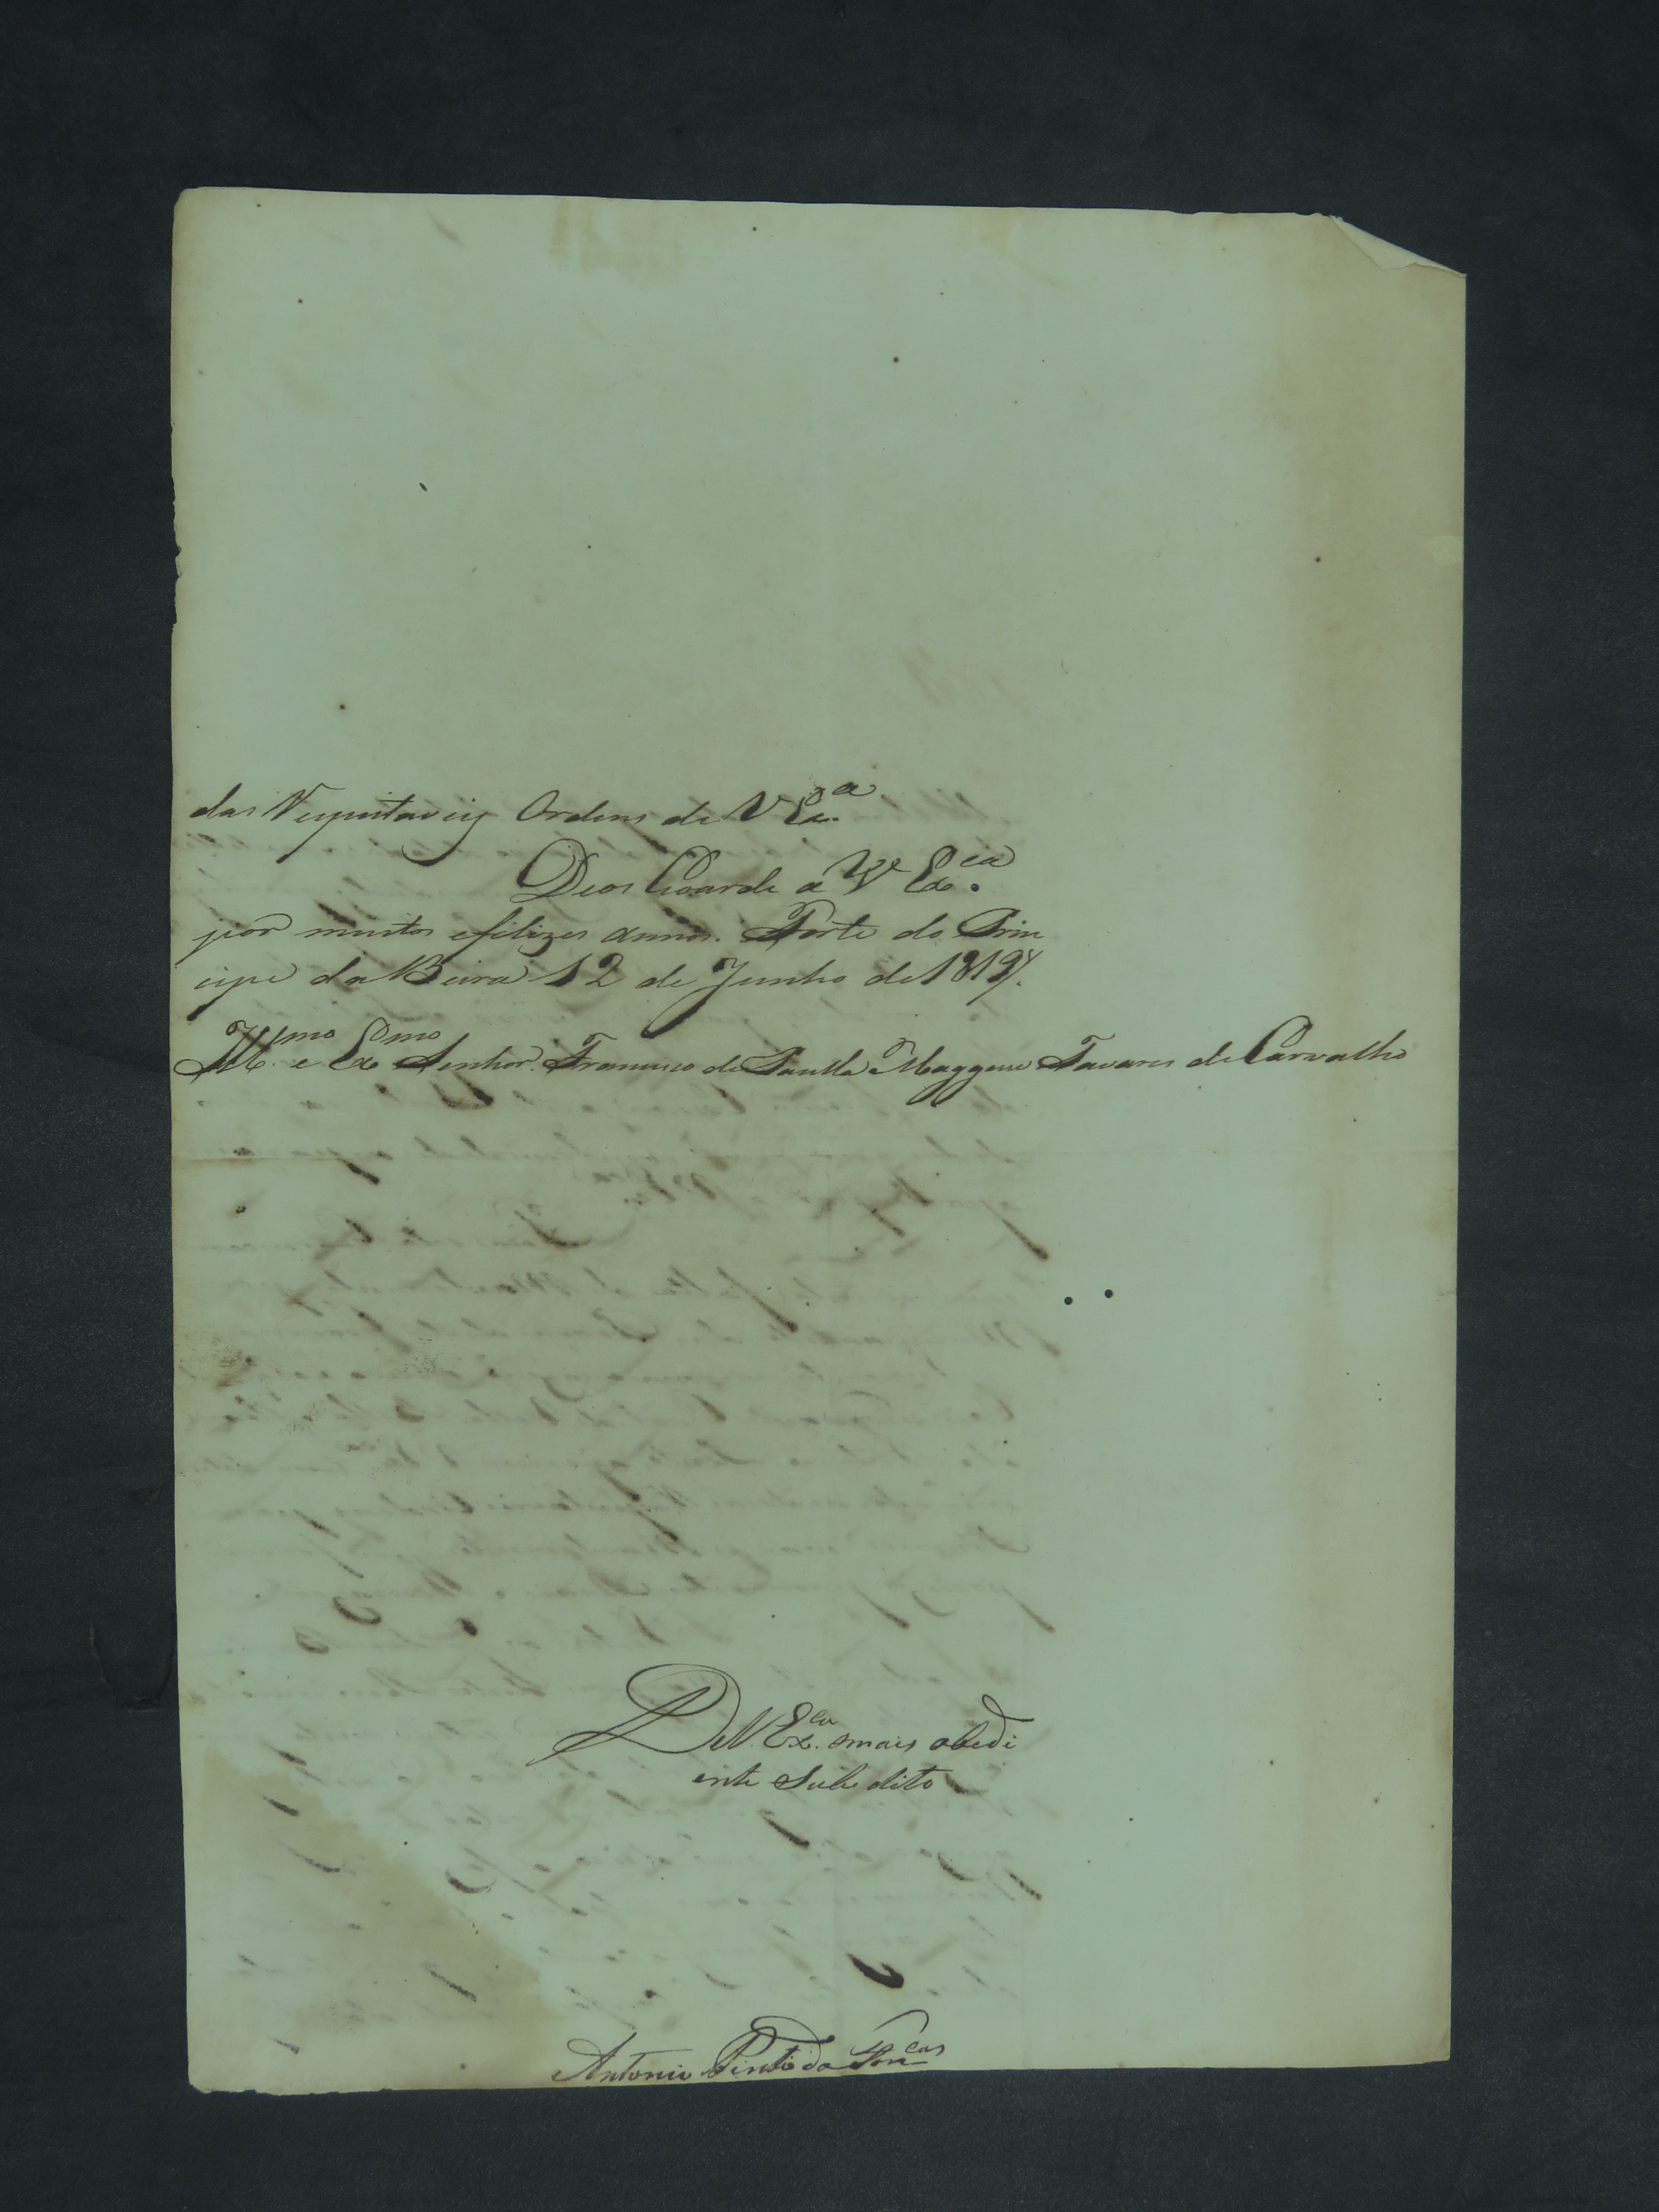 das Respeitaveis Ordens de V Ex.ª
Deos Goarde a V Ex.cia
por muitos e felizes annos. Forte do Prin
cipe da Beira 12 de Junho de 1819.
Ill.mo e Ex.mo Senhor. Francisco de Paulla Maggessi Tavares de Carvalho
De V. Ex.cia mais obedi
ente Subdito
Antonio Pinto da Fon.cas